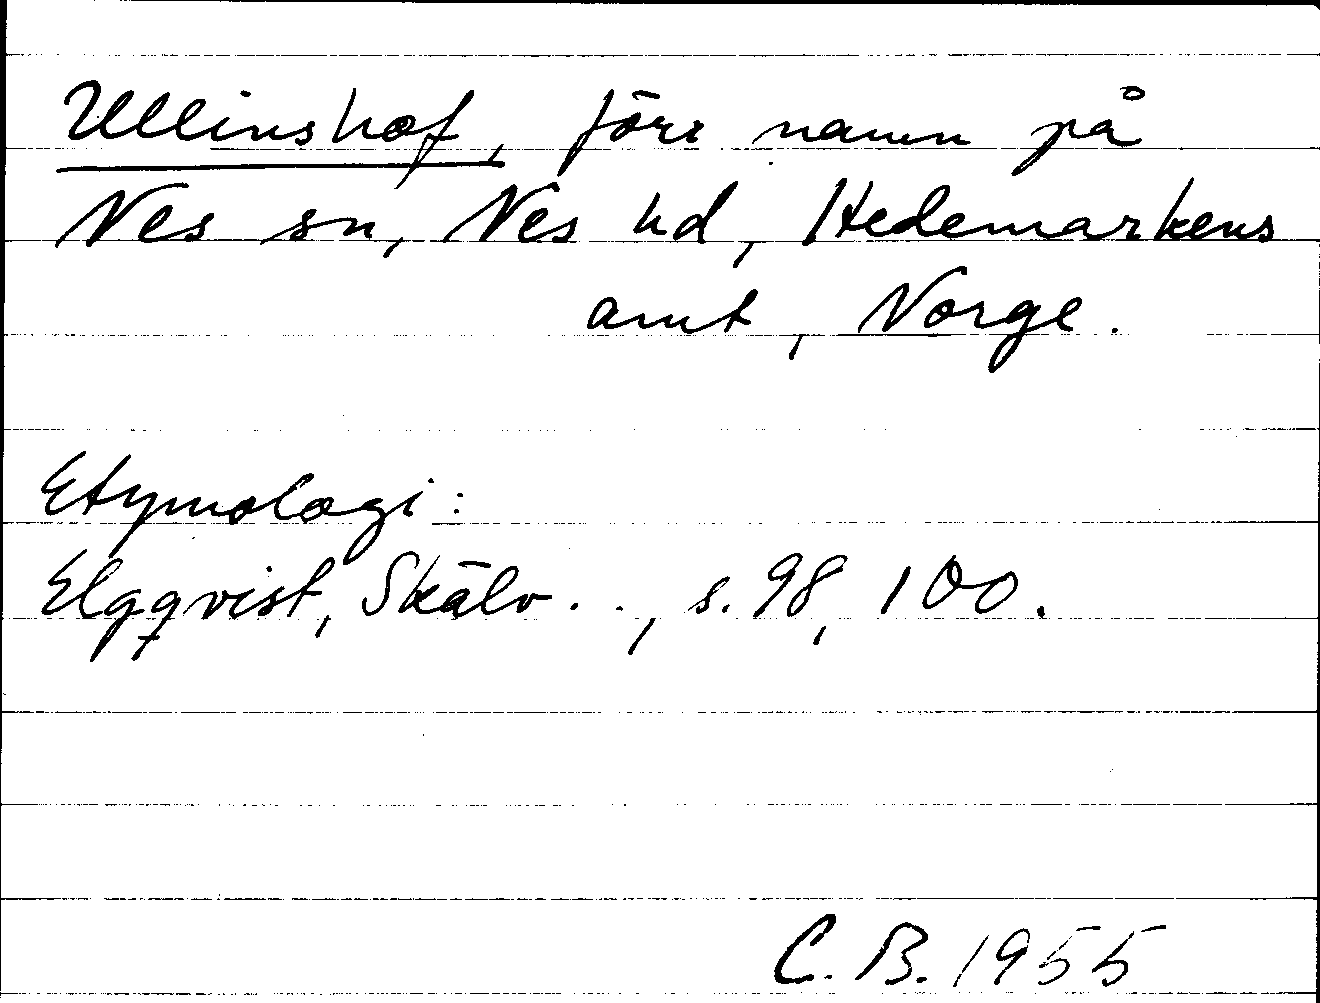 Ullinshof, förr namn på
Nes sn, Nes hd, Hedemarkens
amt, Norge.
Etymologi:
Elgqvist, Skälv..., s. 98, 100.
C. B. 1955